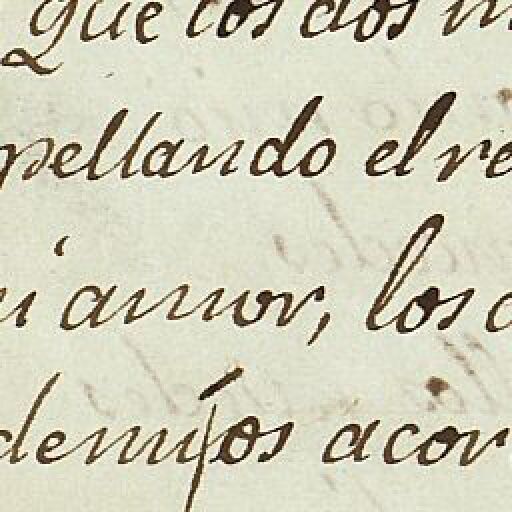 que los dos
pellando el re
i amor, los
de mijos acor